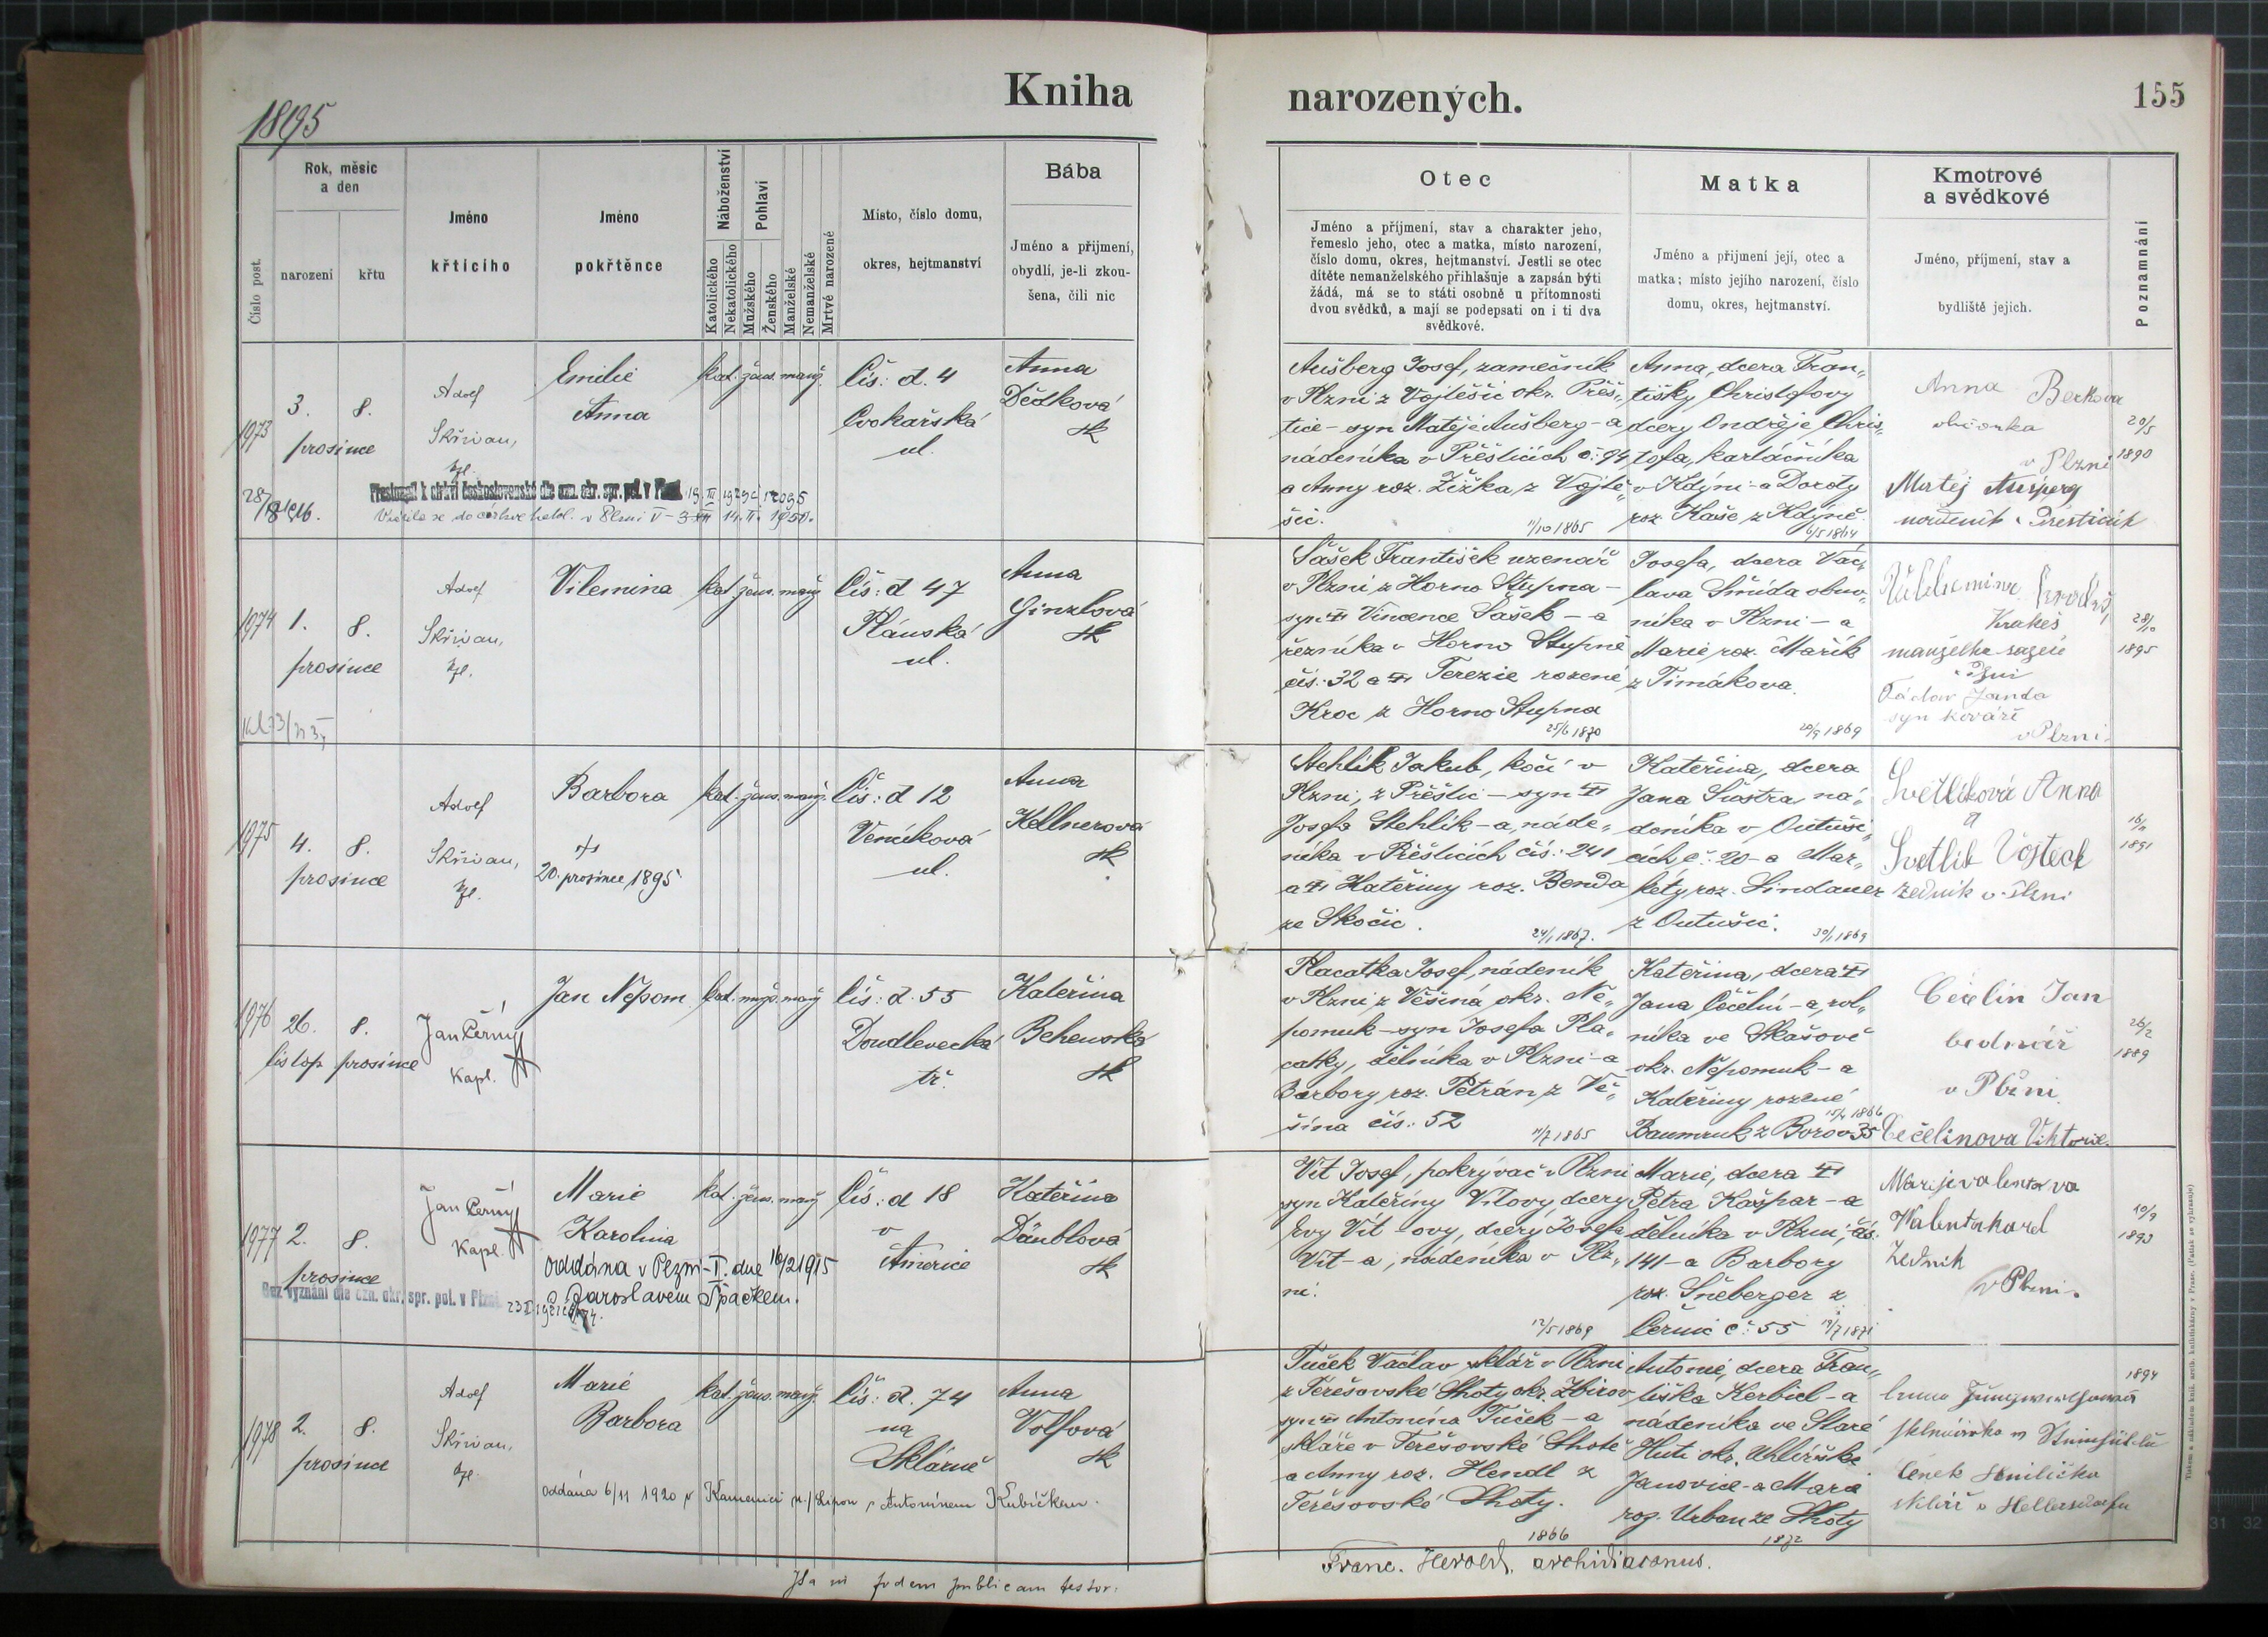 Kniha narozených.
155
1895
Číslo post.
Rok, měsíc
a den
narození
křtu
Jméno
křtícího
Jméno
pokřtěnce
Náboženství
Katolického
Nekatolického
Pohlaví
Mužského
Ženského
Manželské
Nemanželské
Mrtvě narozené
Místo, číslo domu,
okres, hejtmanství
Bába
Jméno a příjmení,
obydlí, je-li zkou-
šena, čili nic
Otec
Jméno a příjmení, stav a charakter jeho,
řemeslo jeho, otec a matka, místo narození,
číslo domu, okres, hejtmanství. Jestli se otec
dítěte nemanželského přihlašuje a zapsán býti
žádá, má se to státi osobně u přítomnosti
dvou svědků, a mají se podepsati on i ti dva
svědkové.
Matka
Jméno a příjmení její, otec a
matka; místo jejího narození, číslo
domu, okres, hejtmanství.
Kmotrové
a svědkové
Jméno, příjmení, stav a
bydliště jejich.
Poznamnání
1973
3.
prosince
8.
Adolf
Skřivan,
kpl.
Emilie
Anna
kat. žens. manž.
Čís: d. 4
Cvokařská
ul.
Anna
Dědková
zk
Aušberg Josef, zámečník
v Plzni z Vojtěšic okr. Přeš-
tice - syn Matěje Aušberg - a
nádeníka v Přešticích č: 94
a Anny roz. Žižka z Vojtě-
šic.
1/10 1865
Anna, dcera Fran-
tišky Christofovy
dcery Ondřeje Chris-
tofa, kartáčníka
v Kdýni - a Doroty
roz. Kaše z Kdýně
6/5 1864
Anna Berkova
v Plzni
Matěj Aušperg
20/5
1890
Vrátila se do církve katol. v Plzni 14. II. 1950.
1974
1.
prosince
8.
Adolf
Skřivan,
kpl.
Vilemina
kat. žens. manž
Čís: d 47
Plánská
ul.
Anna
Ginzlová
zk
Sašek František uzenář
v Plzni z Horno Stupna -
syn Vincence Sašek - a
řezníka v Horno Stupně
čís: 32 a Terezie rozené
Kroc z Horno Stupna
25/6 1870
Josefa, dcera Vác-
lava Šmída obuv-
níka v Plzni - a
Marie roz. Mařík
z Timákova.
20/9 1869
Krakeš
manželka
Václav Janda
syn kováře
v Plzni.
28/10
1895
1975
4.
prosince
8.
Adolf
Skřivan,
kpl.
Barbora
20. prosince 1895
kat. žens. manž.
Čís: d 12
Verčíková
ul.
Anna
Kellnerová
zk
Stehlík Jakub, kočí v
Plzni, z Přeštic - syn
Josefa Stehlík - a, náde-
níka v Přešticích čís: 241
a Kateřiny roz. Benda
ze Skočic.
24/1 1867.
Kateřina, dcera
Jana Šustra, ná-
deníka v Outuši-
cích č: 20 - a Mar-
kéty roz. Lindauer
z Outušic.
30/1 1869
Svetliková Anna
a
Svetlik Vojtěch
zedník v Plzni
16/11
1891
1976
26.
listop.
8.
prosince
Jan Černý
kapl.
Jan Nepom
kat. muž. manž
Čís: d. 55
Doudlevecká
tř.
Kateřina
Behenská
zk
Placatka Josef, nádeník
v Plzni z Věšína, okr. Ne-
pomuk - syn Josefa Pla-
catky, dělníka v Plzni - a
Barbory roz. Petrán z Vě-
šína čís: 52
11/7 1865
Kateřina, dcera
Jana Čečelín - a, rol-
níka ve Skašově
okr. Nepomuk - a
Kateřiny rozené
15/4 1866
Baumruk z Borov 35
Čečelin Jan
bednář
v Plzni.
Čečelinova Viktorie.
26/2
1889
1977
2.
prosince
8.
Jan Černý
Kapl.
Marie
Karolina
oddána v Plzni - I. dne 16/2 1915
s Jaroslavem Špačkem.
Bez vyznání dle ozn. okr. spr. pol. v Plzni
kat. žens. manž
Čís: d 18
v
Americe
Kateřina
Däublová
zk
Vít Josef, pokrývač v Plzni
syn Kateřiny Vítovy, dcery
Evy Vít - ovy, dcery Josefa
Vít - a, nádeníka v Plz-
ni.
12/5 1869
Marie, dcera
Petra Kašpar - a
dělníka v Plzni, čís:
141 - a Barbory
roz. Šneberger z
Černic č: 55
19/7 1871
Marijevalentova
Walentakarel
Zedník
v Plzni.
10/9
1893
1978
2.
prosince
8.
Adolf
Skřivan,
kpl.
Marie
Barbora
oddána 6/11 1920 v Kamenici n./Lipou s Antonínem Kubíčkem.
kat. žens. manž.
Čís: d. 74
na
Sklárně
Anna
Volfová
zk
Tuček Václav sklář v Plzni
z Terešovské Lhoty okr. Zbirov
syn Antonína Tuček - a
skláře v Terešovské Lhotě
a Anny roz. Hendl z
Terešovské Lhoty.
1866
Antonie, dcera Fran-
tiška Kerbicl - a
nádeníka ve Staré
Huti okr. Uhlířské
Janovice - a Marie
roz. Urban ze Lhoty
1872
Čeněk
1894
Ita in fidem publicam testor:
Franc. Herold, archidiaconus.